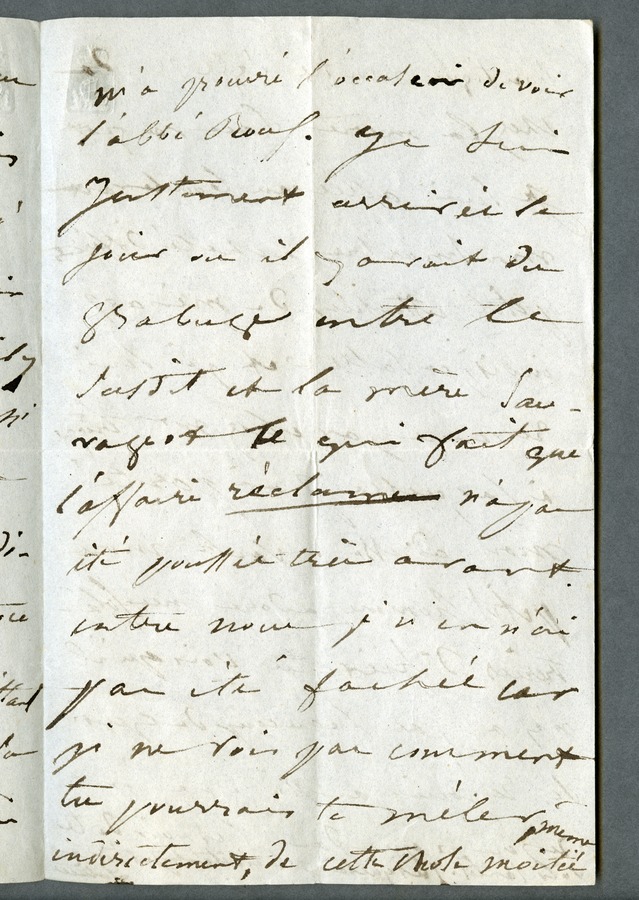 m'a procuré l'occasion de voir
l'abbé Roul. Je suis
justement arrivée le
jour ou il y avait du
grabuge entre le
susdit et la mère Sau-
vageot ce qui fait que
l'affaire réclame n'a pas
été poussée très avant.
entre nous je n'en n'ai
pas été fachée car
je ne vois pas comment
tu pourrais te mêler même
indirectement, de cette chose moitié